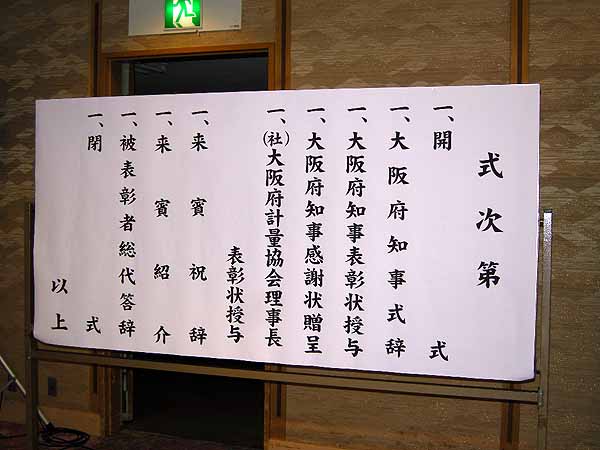 式次第
一、開式
一、大阪府知事式辞
一、大阪府知事表彰状授与
一、大阪府知事感謝状贈呈
一、(社)大阪府計量協会理事長
表彰状授与
一、来賓祝辞
一、来賓紹介
一、被表彰者総代答辞
一、閉式
以上